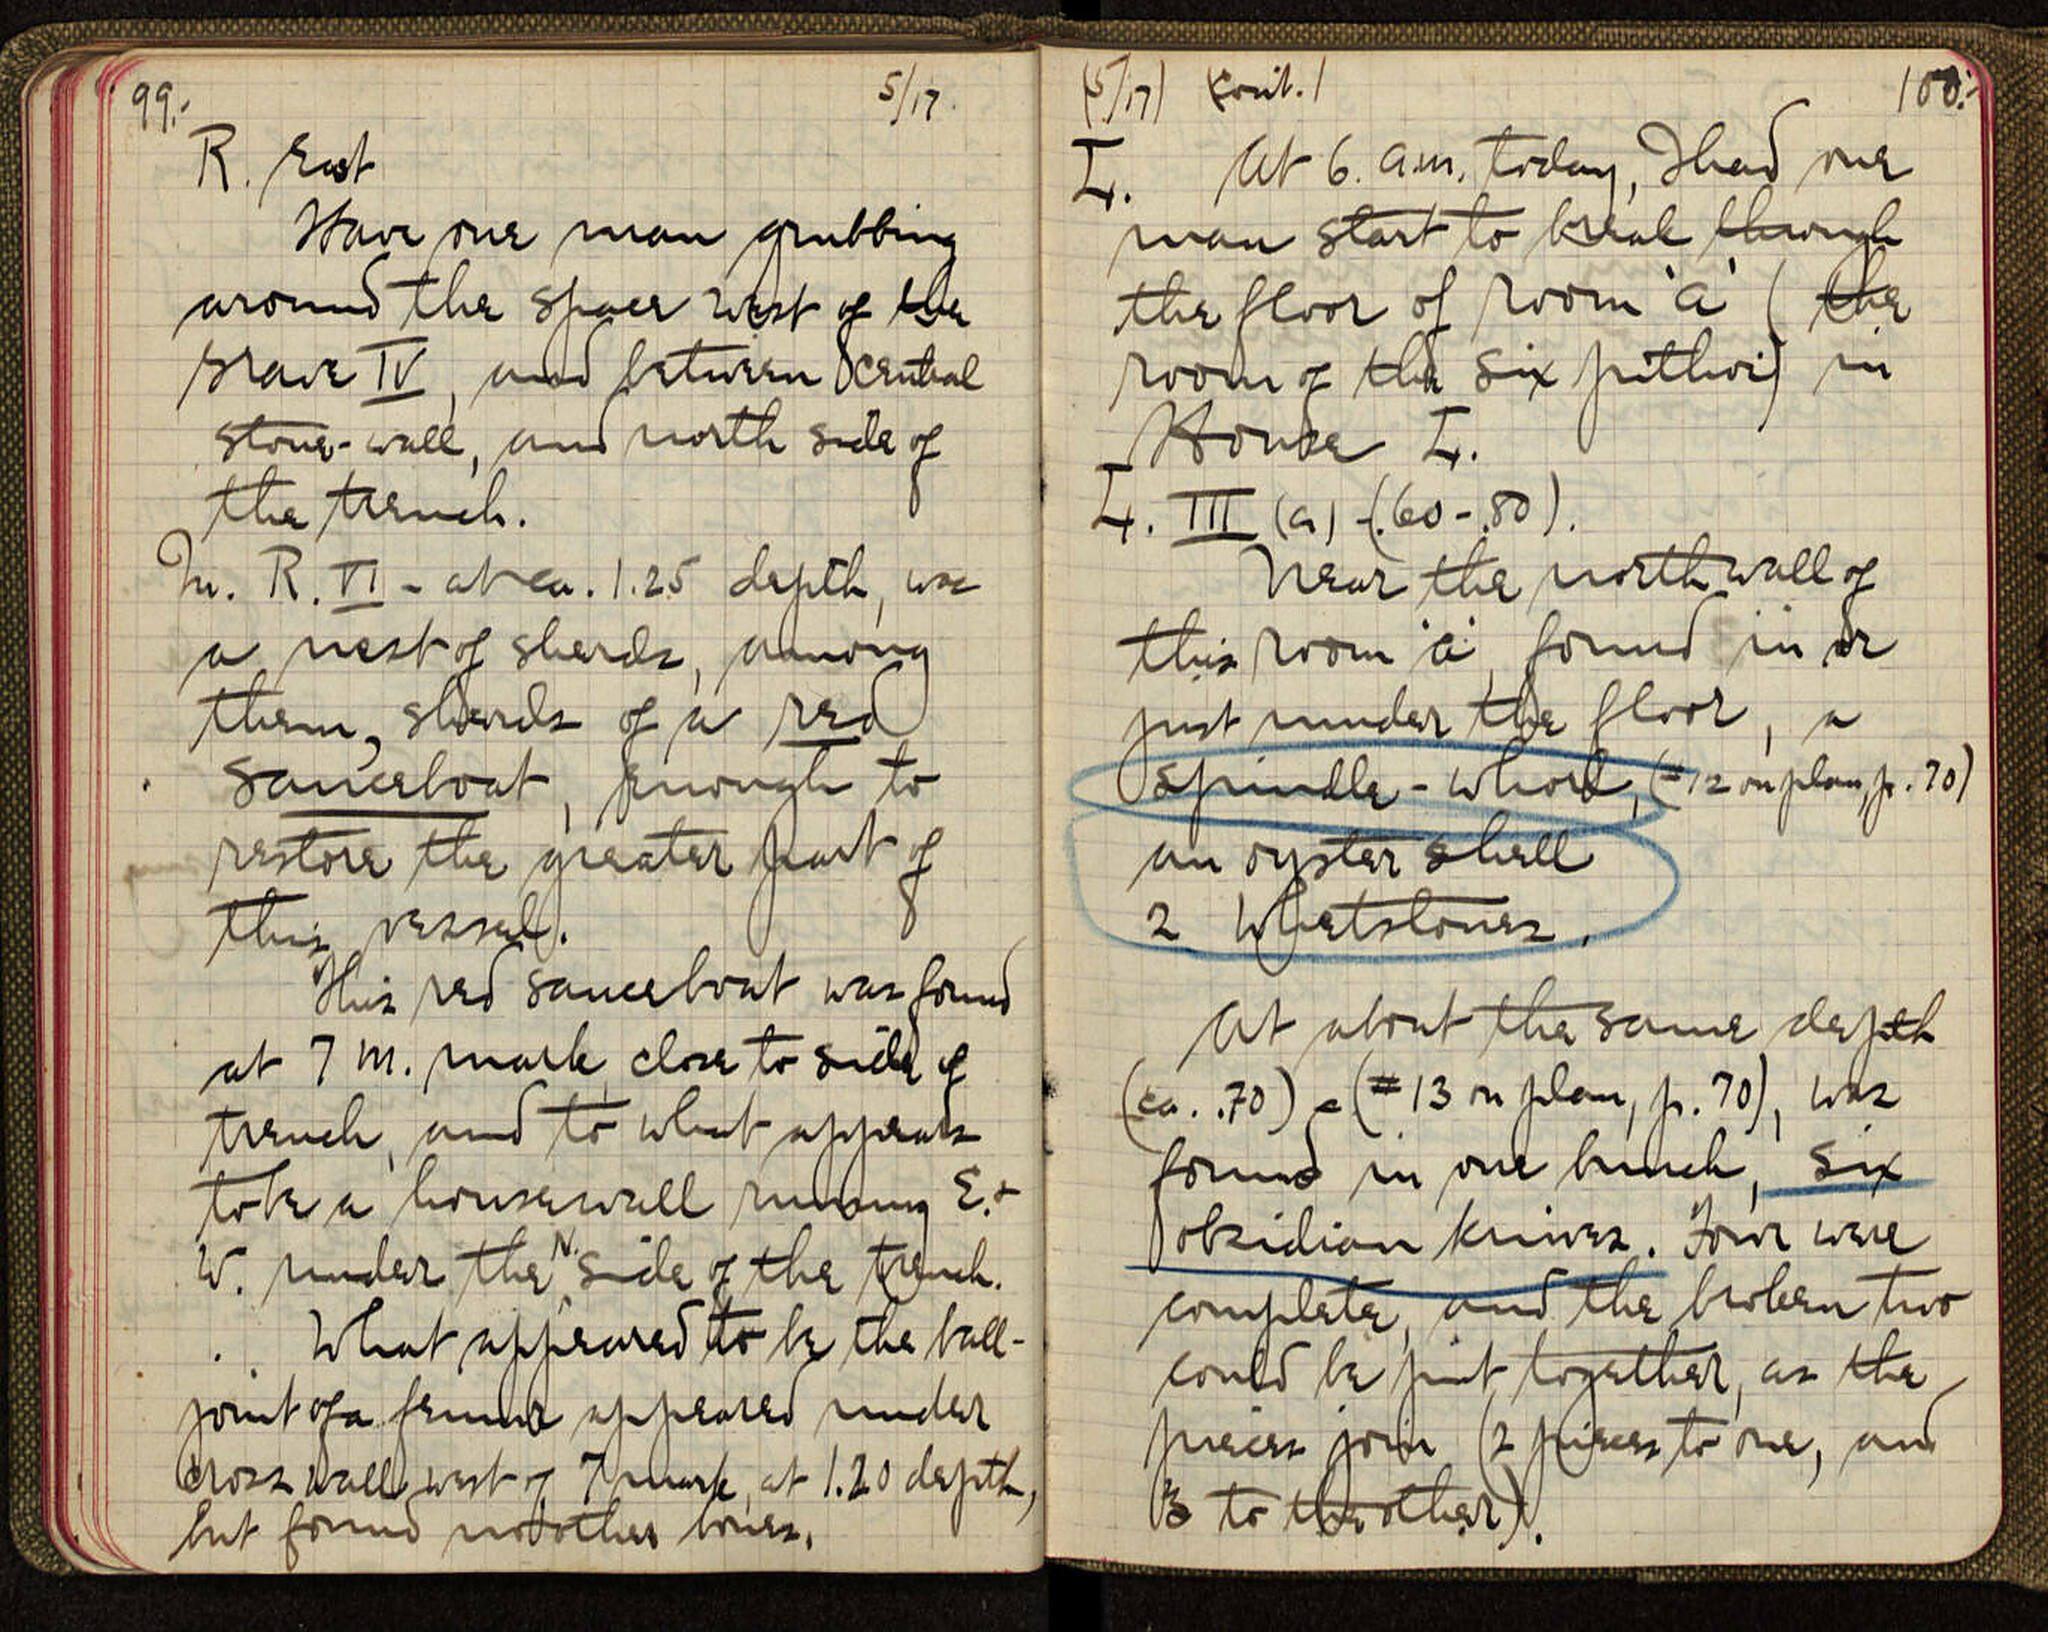 99.-
5/17.
R. East
Have one man grubbing
around the space west of the
grave IV, and between central
stone-wall, and north side of
the trench.
In. R. VI - at ca. 1.25 depth, was
a nest of sherds, among
them, sherds of a red
sauceboat, enough to
restore the greater part of
this vessel.
This red sauceboat was found
at 7 m. mark close to side of
trench, and to what appears
to be a housewall running E. +
W. under the N. side of the trench.
What appeared to be the ball-
joint of a femur appeared under
cross wall west of 7 mark, at 1.20 depth,
but found no other bones.
(5/17) (cont.)
100.-
L. At 6. a.m. today, I had one
man start to break through
the floor of room 'a' (the
room of the six pithoi) in
House L.
L. III (a) - (.60 - .80).
Near the north wall of
this room 'a', found in or
just under the floor, a
spindle-whorl, (#12 on plan, p. 70)
an oyster shell
2 whetstones.
At about the same depth
(ca. .70) - (#13 on plan, p. 70), was
found in one bunch, six
obsidian knives. Four were
complete, and the broken two
could be put together, as the
pieces join (2 pieces to one, and
3 to the other).